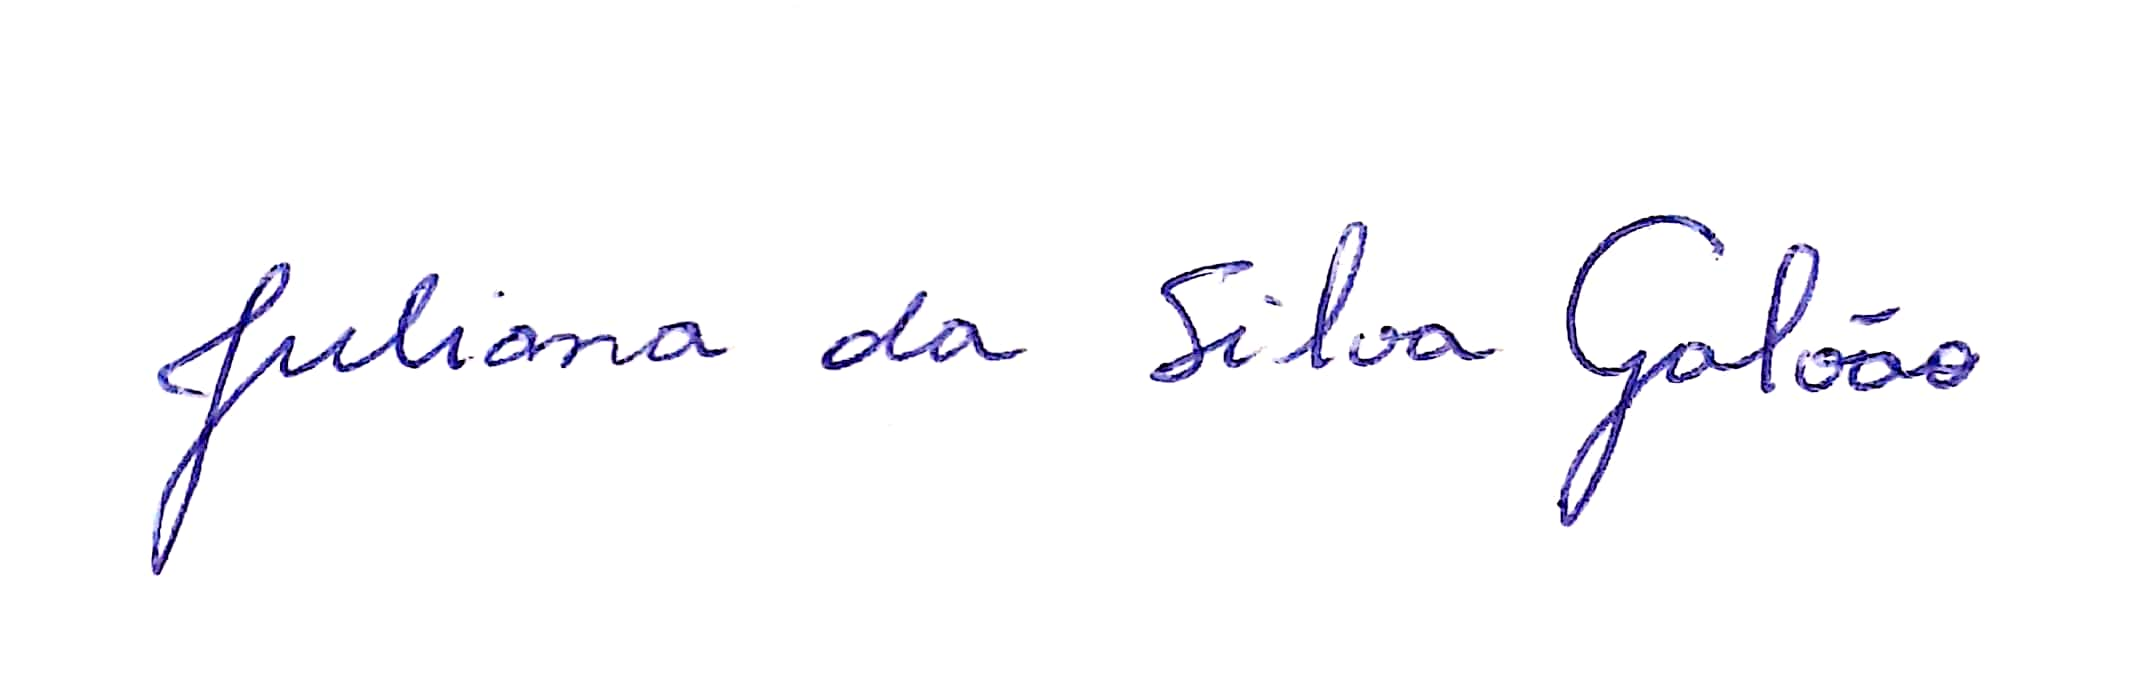 Juliana da Silva Galvão